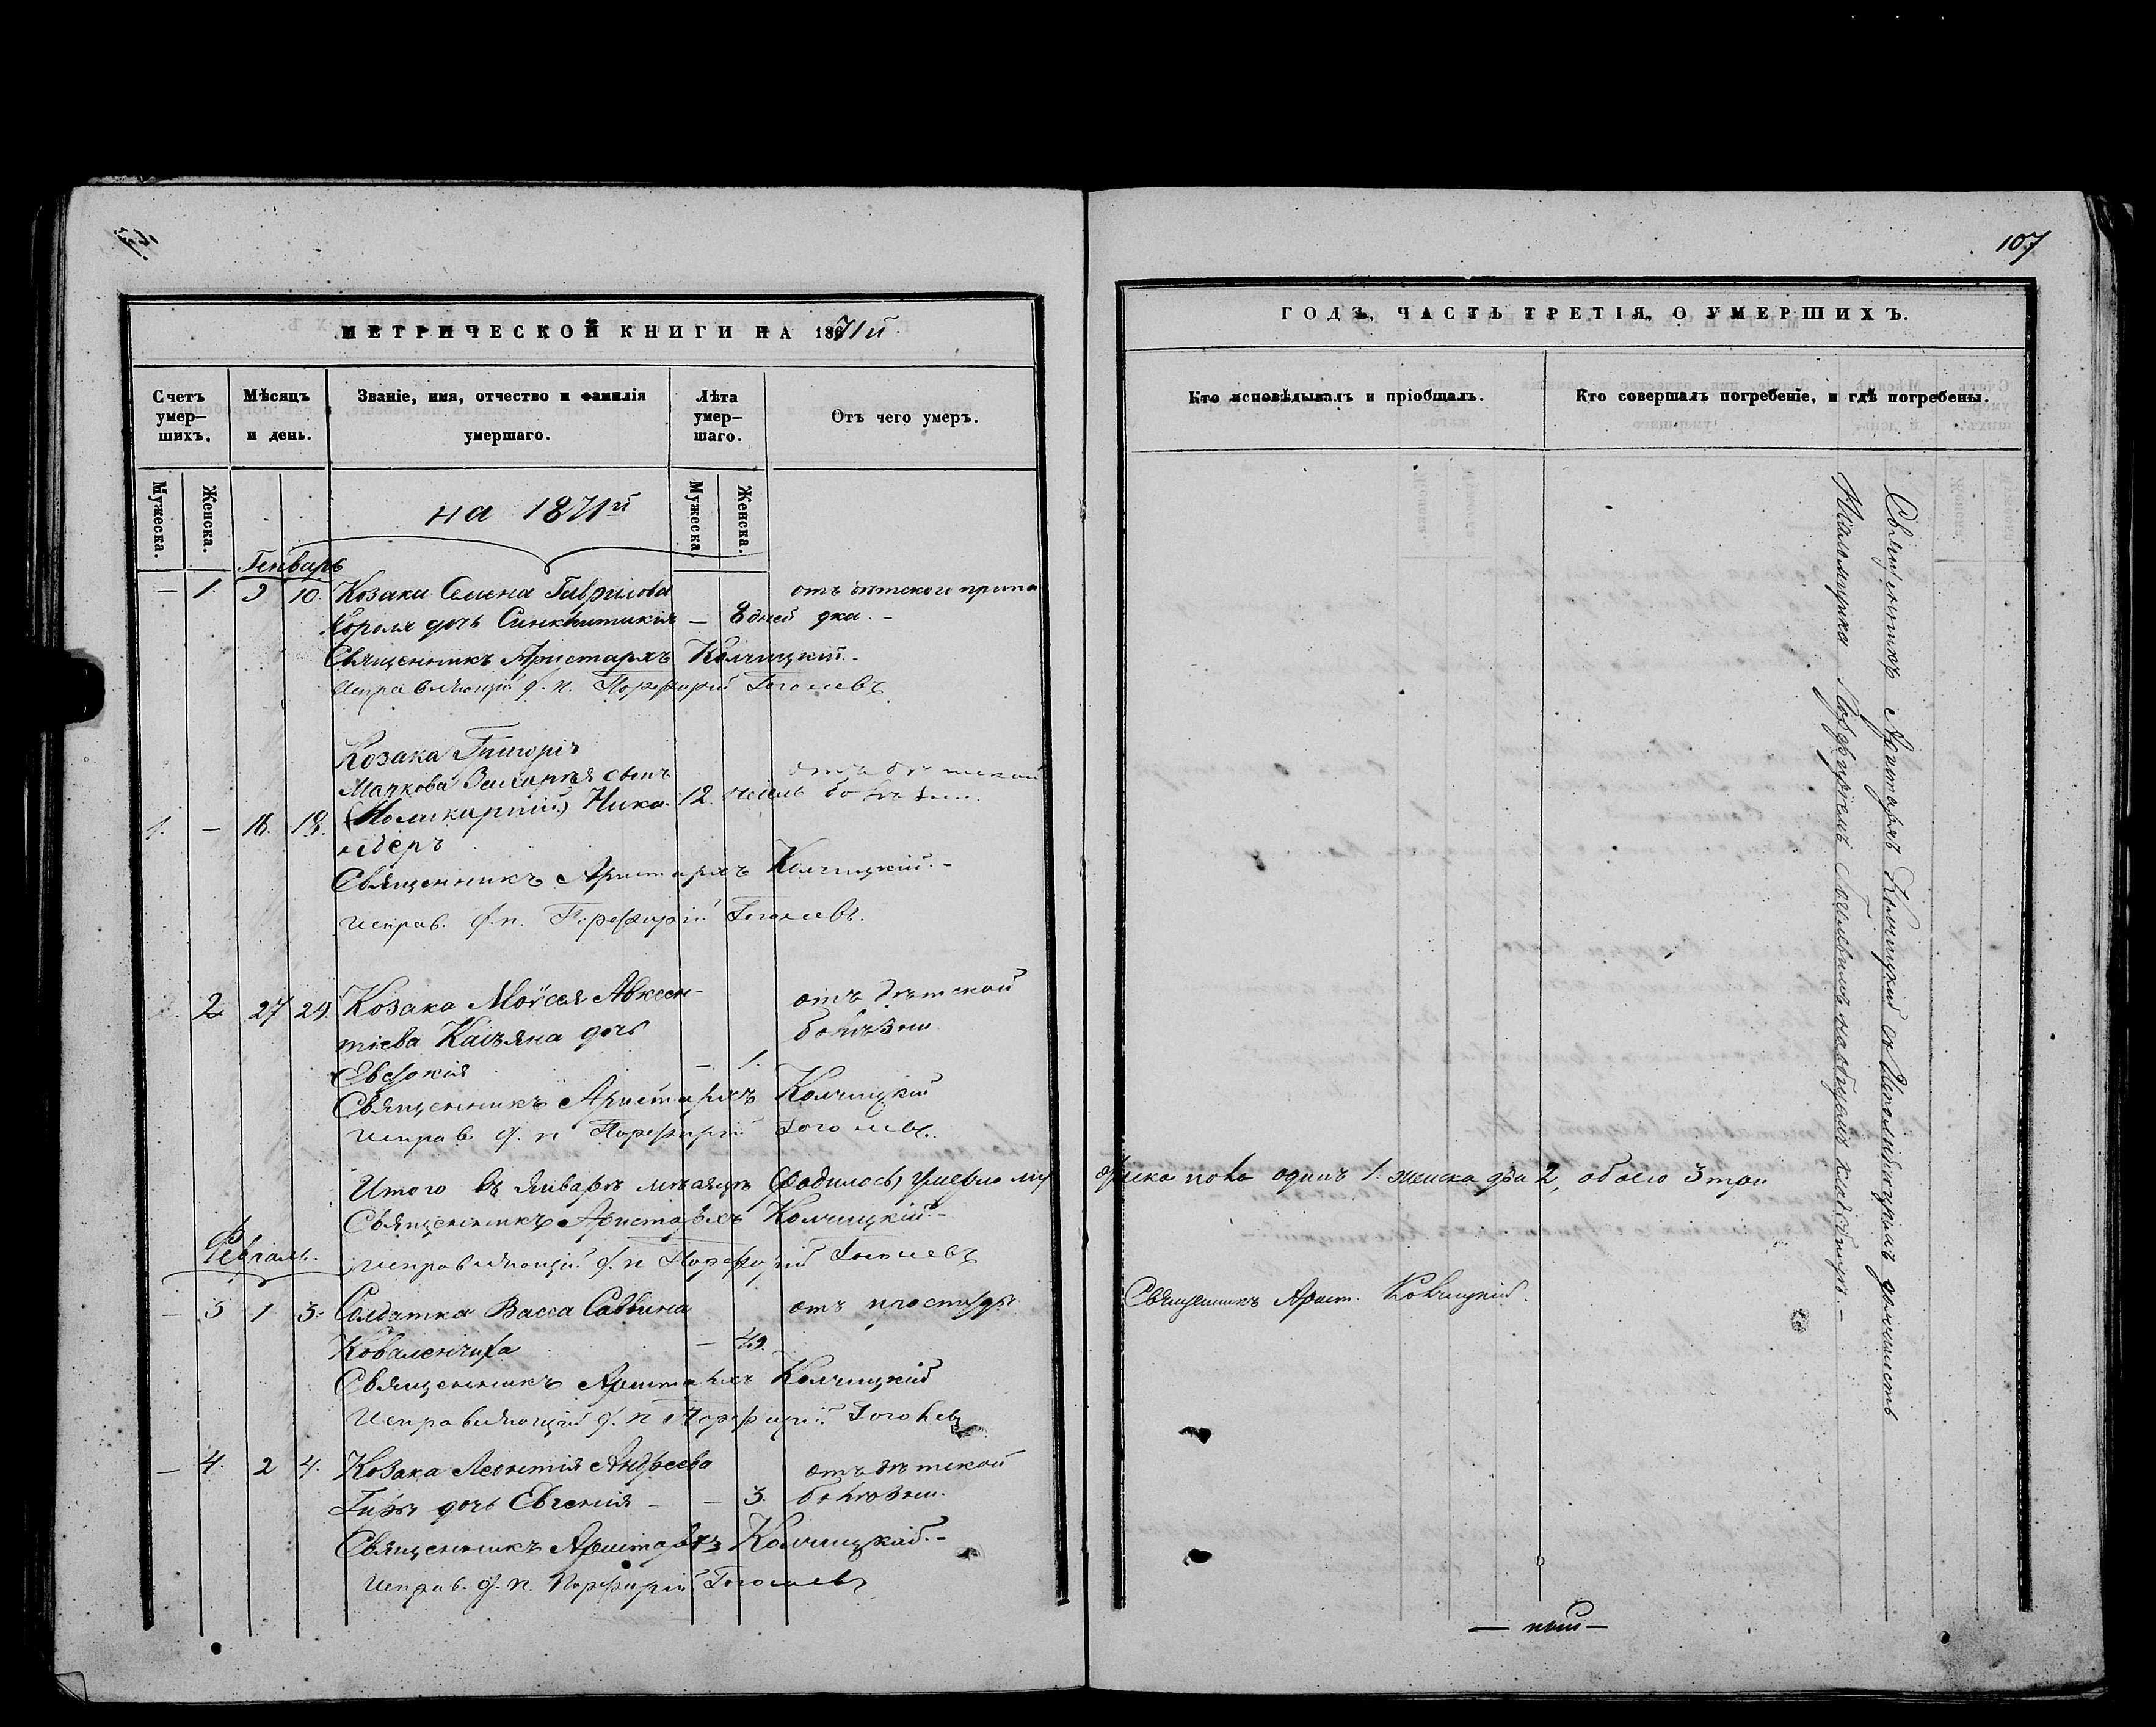 107
МЕТРИЧЕСКОЙ КНИГИ НА 1871й
Счетъ умер–шихъ.
Мѣсяцъ и день.
Званіе, имя, отчество и фамилія умершаго.
Лѣта умер–шаго.
Отъ чего умеръ.
Мужеска.
Женска.
Мужеска
Женска.
на 1871й
Генварь
— 1. 9 10. Козака Семена Гаврилова отъ дѣтского припа
Короля дочь Синклитикія — 8 дней дка. –
Священникъ Аристархъ Колчицкій. –
Исправляющій д. п. Порфирій Гоголевъ
Козака Григорія
Маркова сынъ отъ дѣтской
1. — 16. 18. (Поликарпій) Ника– 12. недель болѣзни.
Священникъ Аристархъ Колчицкій. –
исправ. д. п. Порфирій Гоголевъ.
2 27 29. Козака Моѵсея Авксен– отъ дѣтской
тіева Касьяна дочь болѣзни
Евдокія — 1.
Священникъ Аристархъ Колчицкій
исправ. д. п Порфирій Гоголевъ.
Итого въ январѣ мѣсяцѣ (родилось) умерло му
жеска пола одинъ 1. женска два 2, обоего 3 три
Священникъ Аристархъ Колчицкій. –
Исправляющій д. п Порфирій Гоголевъ
Февраль.
— 3 1 3. Солдатка Васса Саввина отъ простуды
Коваленчиха — 49.
Священникъ Аристархъ Колчицкій
Исправляющій д. п Порфирій Гоголевъ
— 4. 2 4. Козака Леонтія Андреева отъ дѣтской
дочь Евгенія – — 3. болѣзни.
Священникъ Аристархъ Колчицкій. –
Исправ. д. п. Порфирій Гоголевъ
ГОДЪ, ЧАСТЬ ТРЕТІЯ, О УМЕРШИХЪ.
Кто исповѣдывалъ и пріобщалъ.
Кто совершалъ погребеніе, и гдѣ погребены.
Священникъ Арист. Колчицкій.
Священникъ Аристархъ Колчицкій съ должность
Псаломщика Порфиріемъ Гоголевымъ на общемъ кладбищѣ. –
— ный —